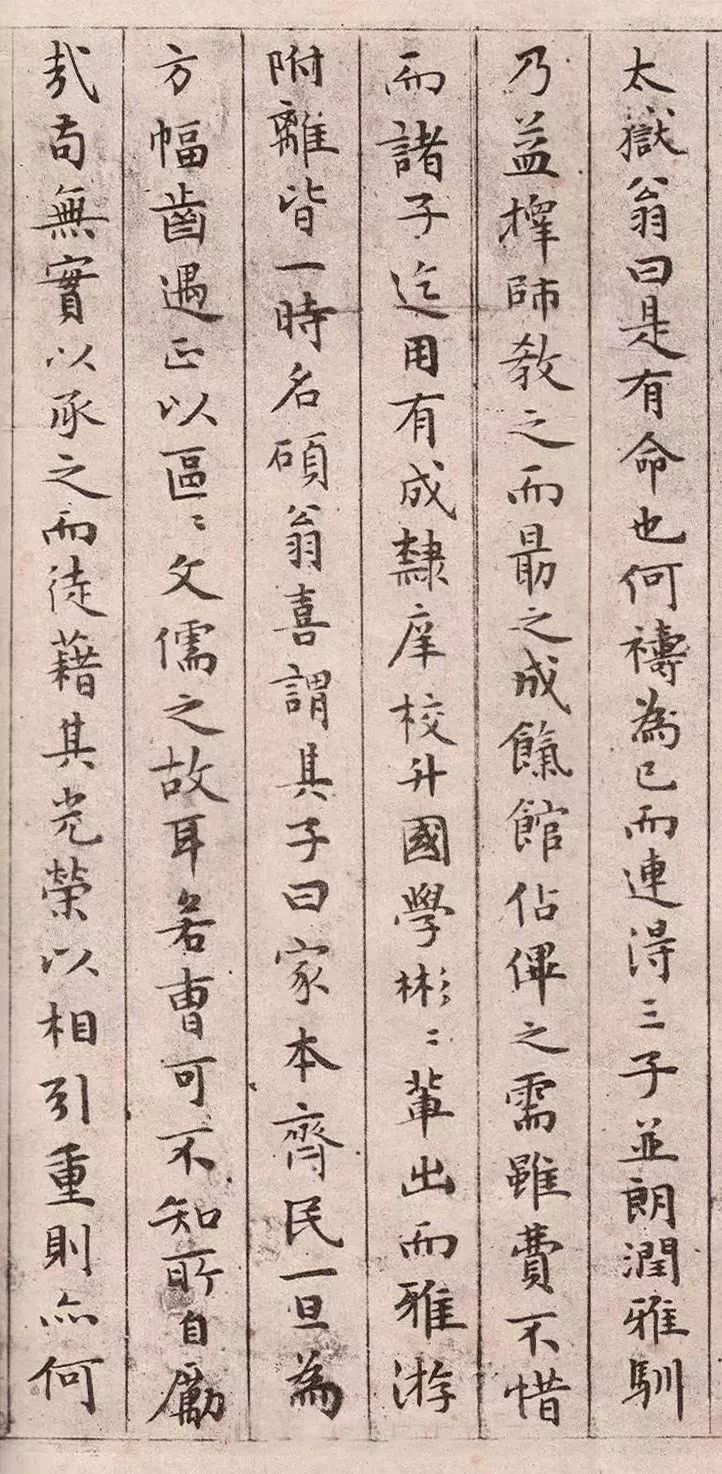 太嶽翁曰是有命也何禱為已而連得三子並朗潤雅馴
乃益擇師教之而朂之成餼館佔俾之需雖費不惜
而諸子迄用有成隸庠校升國學彬〻輩出而雅游
附離皆一時名碩翁喜謂其子曰家本齊民一旦為
方幅齒遇正以區〻文儒之故耳若曹可不知所自勵
哉苟無實以承之而徒藉其光榮以相引重則亦何